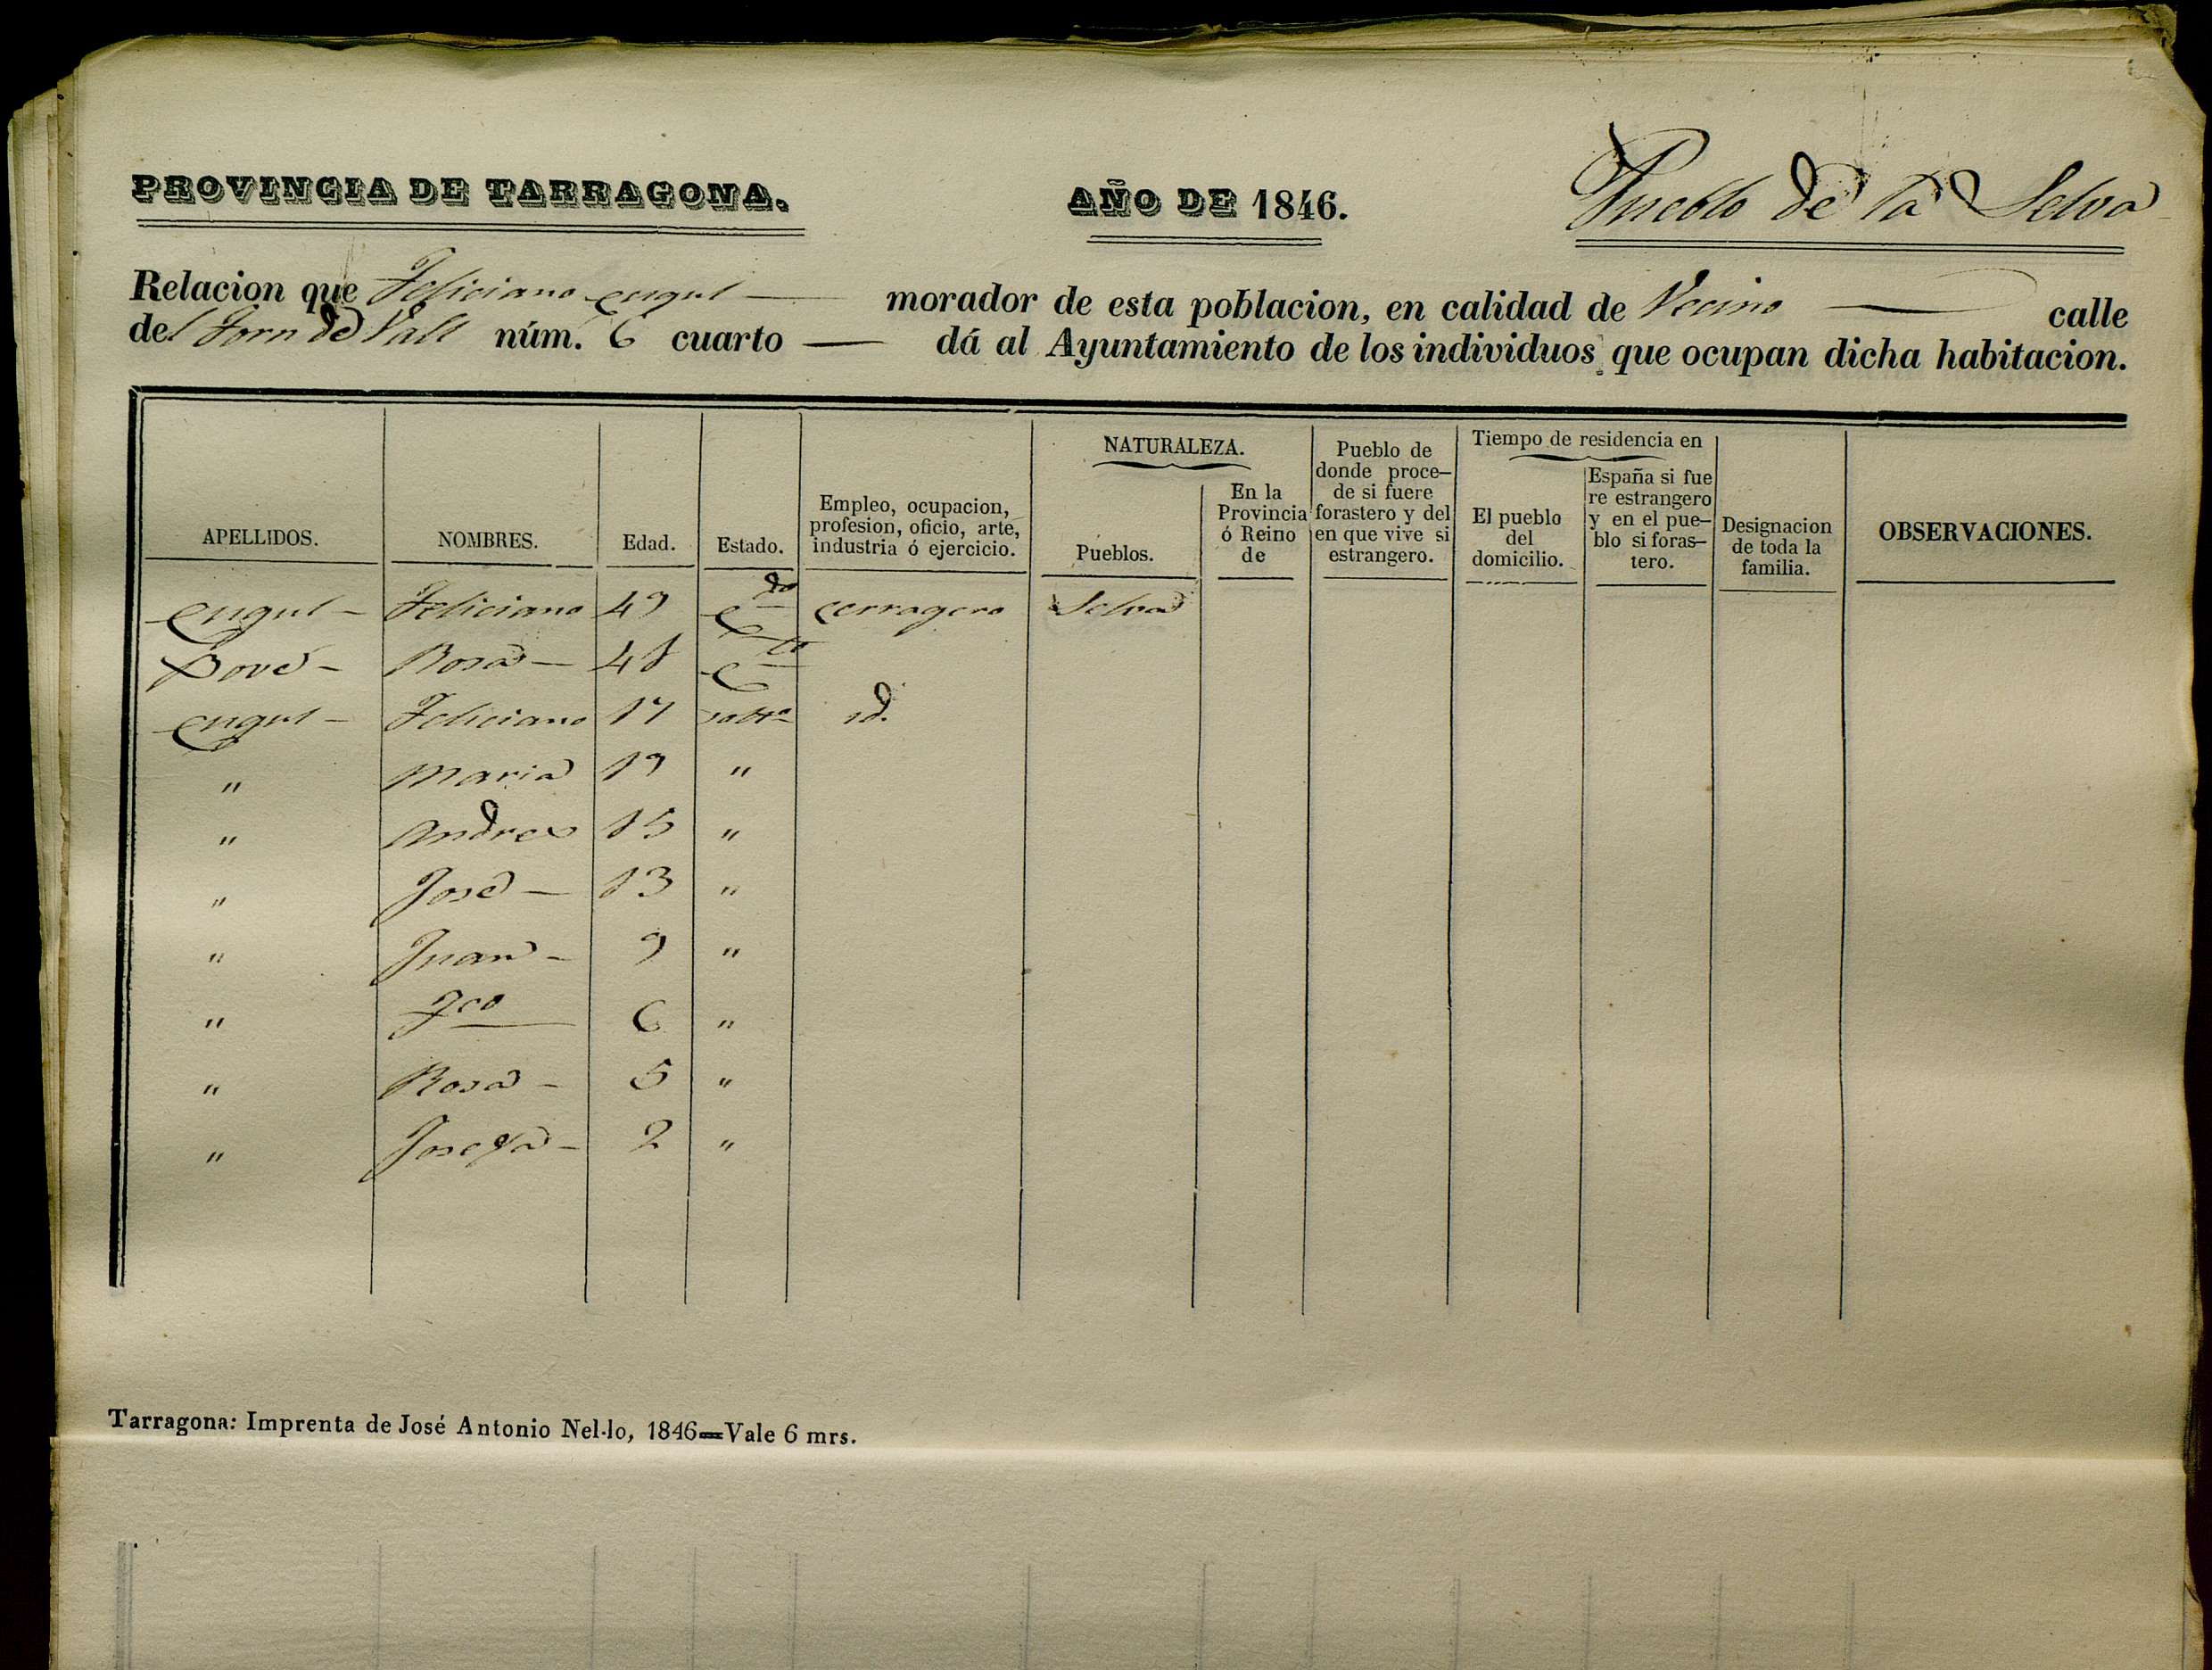 PROVINCIA DE TARRAGONA. AÑO DE 1846. Pueblo de la Selva
Relacion que Feliciano Cugul — morador de esta poblacion, en calidad de Vecino — calle
del Forn de Vall núm. 6 cuarto — dá al Ayuntamiento de los individuos que ocupan dicha habitacion.
APELLIDOS. NOMBRES. Edad. Estado. Empleo, ocupacion, profesion, oficio, arte, industria ó ejercicio. NATURALEZA. Pueblos. En la Provincia ó Reino de Pueblo de donde procede si fuere forastero y del en que vive si estrangero. Tiempo de residencia en El pueblo del domicilio. España si fuere estrangero y en el pueblo si forastero. Designacion de toda la familia. OBSERVACIONES.
Cugul - Feliciano 49 Cdo cerragero Selva
Bové - Rosa - 48 Cda
Cugul - Feliciano 17 solto id.
" Maria 19 "
" Andres 15 "
" José - 13 "
" Juan - 9 "
" Fco 6 "
" Rosa - 5 "
" Josefa - 2 "
Tarragona: Imprenta de José Antonio Nel·lo, 1846=Vale 6 mrs.